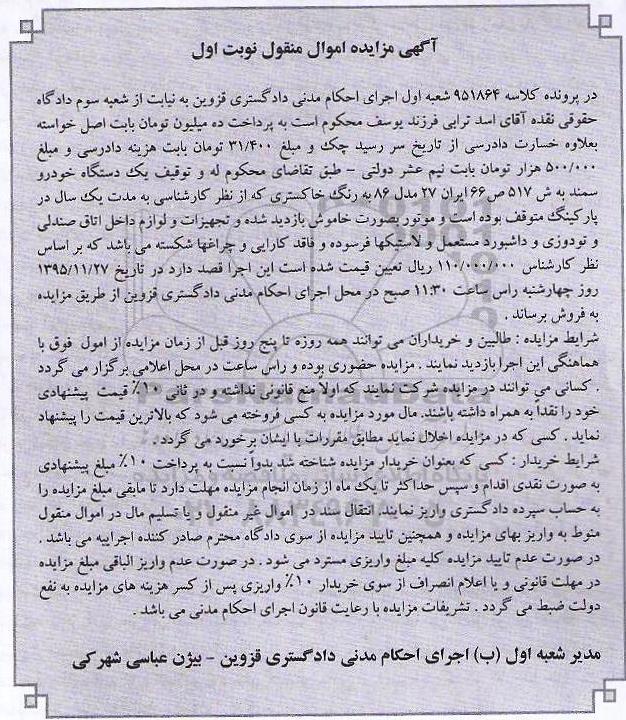 آگهی مزایده اموال منقول نوبت اول
در پرونده کلاسه ۹۵۱۸۶۴ شعبه اول اجرای احکام مدنی دادگستری قزوین به نیابت از شعبه سوم دادگاه
حقوقی نقده آقای اسد ترابی فرزند یوسف محکوم است به پرداخت ده میلیون تومان بابت اصل خواسته
بعلاوه خسارت دادرسی از تاریخ سر رسید چک و مبلغ ۳۱/۴۰۰ تومان بابت هزینه دادرسی و مبلغ
۵۰۰/۰۰۰ هزار تومان بابت نیم عشر دولتی – طبق تقاضای محکوم له و توقیف یک دستگاه خودرو
سمند به ش ۵۱۷ ص ۶۶ ایران ۲۷ مدل ۸۶ به رنگ خاکستری که از نظر کارشناسی به مدت یک سال در
پارکینگ متوقف بوده است و موتور بصورت خاموش بازدید شده و تجهیزات و لوازم داخل اتاق صندلی
و تودوزی و داشبورد مستعمل و لاستیکها فرسوده و فاقد کارایی و چراغها شکسته می باشد که بر اساس
نظر کارشناس ۱۱۰/۰۰۰/۰۰۰ ریال تعیین قیمت شده است این اجرا قصد دارد در تاریخ ۱۳۹۵/۱۱/۲۷
روز چهارشنبه راس ساعت ۱۱:۳۰ صبح در محل اجرای احکام مدنی دادگستری قزوین از طریق مزایده
به فروش برساند .
شرایط مزایده : طالبین و خریداران می توانند همه روزه تا پنج روز قبل از زمان مزایده از امول فوق با
هماهنگی این اجرا بازدید نمایند . مزایده حضوری بوده و راس ساعت در محل اعلامی برگزار می گردد
. کسانی می توانند در مزایده شرکت نمایند که اولاً منع قانونی نداشته و در ثانی ۱۰٪ قیمت پیشنهادی
خود را نقدا به همراه داشته باشند. مال مورد مزایده به کسی فروخته می شود که بالاترین قیمت را پیشنهاد
نماید . کسی که در مزایده اخلال نماید مطابق مقررات با ایشان برخورد می گردد .
شرایط خریدار : کسی که بعنوان خریدار مزایده شناخته شد بدواً نسبت به پرداخت ۱۰٪ مبلغ پیشنهادی
به صورت نقدی اقدام و سپس حداکثر تا یک ماه از زمان انجام مزایده مهلت دارد تا مابقی مبلغ مزایده را
به حساب سپرده دادگستری واریز نمایند. انتقال سند در اموال غیر منقول و یا تسلیم مال در اموال منقول
منوط به واریز بهای مزایده و همچنین تایید مزایده از سوی دادگاه محترم صادر کننده اجراییه می باشد .
در صورت عدم تایید مزایده کلیه مبلغ واریزی مسترد می شود . در صورت عدم واریز الباقی مبلغ مزایده
در مهلت قانونی و یا اعلام انصراف از سوی خریدار ۱۰٪ واریزی پس از کسر هزینه های مزایده به نفع
دولت ضبط می گردد . تشریفات مزایده با رعایت قانون اجرای احکام مدنی می باشد .
مدیر شعبه اول (ب) اجرای احکام مدنی دادگستری قزوین – بیژن عباسی شهرکی